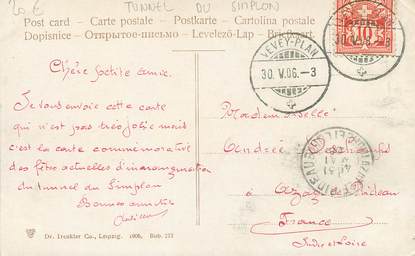 20 €
TUNNEL DU SIMPLON
Post card - Carte postale - Postkarte - Cartolina postale
Dopisnice - Открытое письмо - Levelező-Lap - Brefkort
VEVEY-PLAN
30.V.06.-3
10
Chère petite amie.
Je vous envoie cette carte
qui n'est pas très jolie mais
c'est la carte commémorative
des fêtes actuelles d'inauguration
du tunnel du Simplon
Bonnes amitiés
Mademoiselle
Andrée
à Azay le Rideau
France
Indre et Loire
Dr. Trenkler Co., Leipzig. 1906.